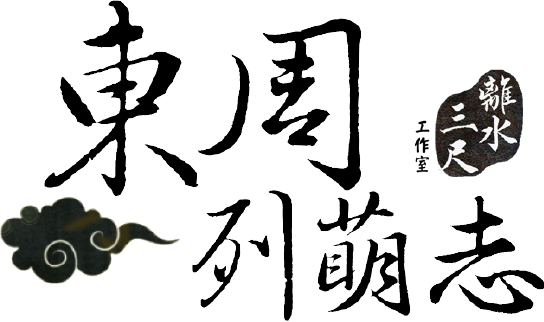 東周
列萌志
離水
三尺
工作室